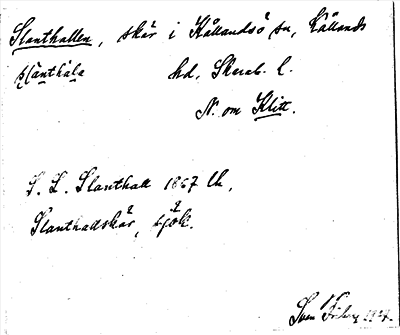 Slanthallen, skär i Kållandsö sn, Kållands
slànthàla hd, Skarab. l.
N. om Klitt.
S. L. Slanthall 1867 Lk,
Slanthallskär, sjök.
Sven 1927.